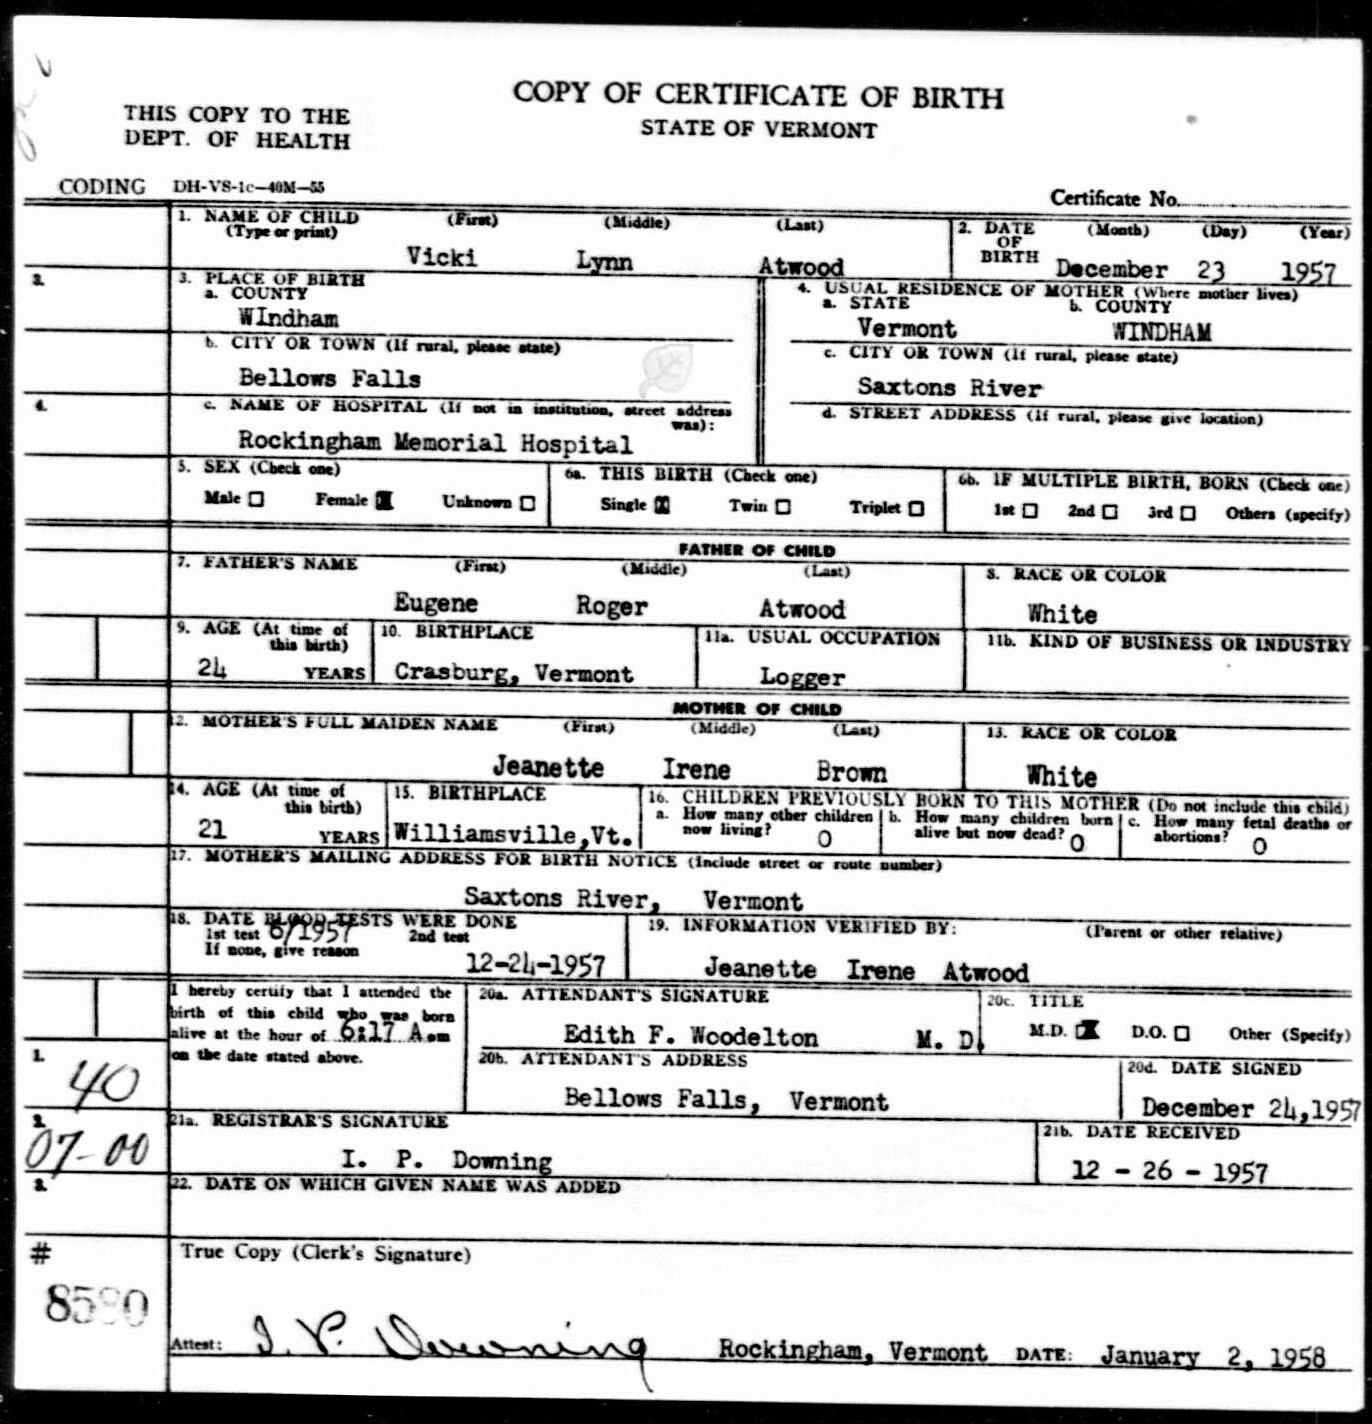 COPY OF CERTIFICATE OF BIRTH
THIS COPY TO THE
DEPT. OF HEALTH
STATE OF VERMONT
CODING DH-VS-1c-40M-55
Certificate No.
1. NAME OF CHILD (First) (Middle) (Last)
(Type or print)
Vicki Lynn Atwood
2. DATE OF BIRTH (Month) (Day) (Year)
December 23 1957
3. PLACE OF BIRTH
a. COUNTY
WIndham
4. USUAL RESIDENCE OF MOTHER (Where mother lives)
a. STATE b. COUNTY
Vermont WINDHAM
b. CITY OR TOWN (If rural, please state)
Bellows Falls
c. CITY OR TOWN (If rural, please state)
Saxtons River
4.
c. NAME OF HOSPITAL (If not in institution, street address
was):
Rockingham Memorial Hospital
d. STREET ADDRESS (If rural, please give location)
5. SEX (Check one)
Male Female Unknown
6a. THIS BIRTH (Check one)
Single X Twin Triplet
6b. IF MULTIPLE BIRTH, BORN (Check one)
1st 2nd 3rd Others (specify)
FATHER OF CHILD
7. FATHER'S NAME (First) (Middle) (Last)
Eugene Roger Atwood
8. RACE OR COLOR
White
9. AGE (At time of
this birth)
24 YEARS
10. BIRTHPLACE
Crasburg, Vermont
11a. USUAL OCCUPATION
Logger
11b. KIND OF BUSINESS OR INDUSTRY
MOTHER OF CHILD
12. MOTHER'S FULL MAIDEN NAME (First) (Middle) (Last)
Jeanette Irene Brown
13. RACE OR COLOR
White
14. AGE (At time of
this birth)
21 YEARS
15. BIRTHPLACE
Williamsville,Vt.
16. CHILDREN PREVIOUSLY BORN TO THIS MOTHER (Do not include this child)
a. How many other children
now living? 0
b. How many children born
alive but now dead? 0
c. How many fetal deaths or
abortions? 0
17. MOTHER'S MAILING ADDRESS FOR BIRTH NOTICE (Include street or route number)
Saxtons River, Vermont
18. DATE BLOOD TESTS WERE DONE
1st test 6/1957 2nd test
If none, give reason
12-24-1957
19. INFORMATION VERIFIED BY: (Parent or other relative)
Jeanette Irene Atwood
I hereby certify that I attended the
birth of this child who was born
alive at the hour of 6:17 A.m
on the date stated above.
20a. ATTENDANT'S SIGNATURE
Edith F. Woodelton M. D.
20c. TITLE
M.D. D.O. Other (Specify)
20b. ATTENDANT'S ADDRESS
Bellows Falls, Vermont
20d. DATE SIGNED
December 24,1957
1.
40
21a. REGISTRAR'S SIGNATURE
I. P. Downing
21b. DATE RECEIVED
12 - 26 - 1957
07-00
22. DATE ON WHICH GIVEN NAME WAS ADDED
#
True Copy (Clerk's Signature)
Attest: I. P. Downing Rockingham, Vermont DATE: January 2, 1958